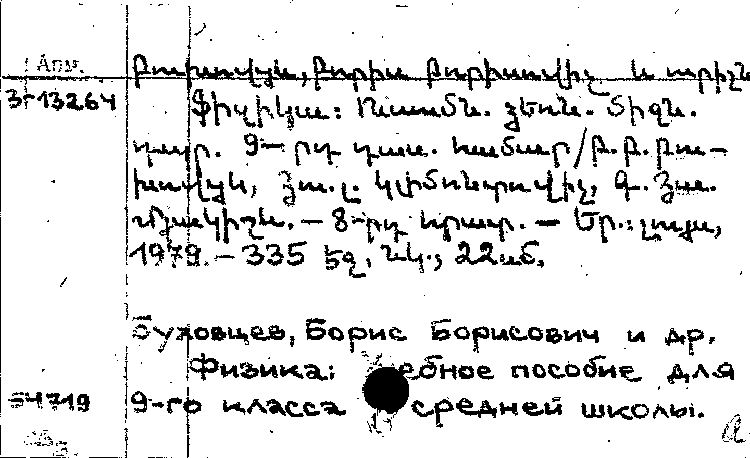 Арм.
Բուխովցև, Բորիս Բորիսովիչ և ուրիշն
Ֆիզիկա: Ուսումն. ձեռն. միջն.
դպր. 9-րդ դաս. համար/Բ.Բ.Բու-
խովցև,
8-րդ հրատ. — Եր.: Լույս,
1979. — 335 էջ, նկ., 22սմ.
Буховцев, Борис Борисович и др.
Физика: пособие для
54719 9-го класса средней школы.